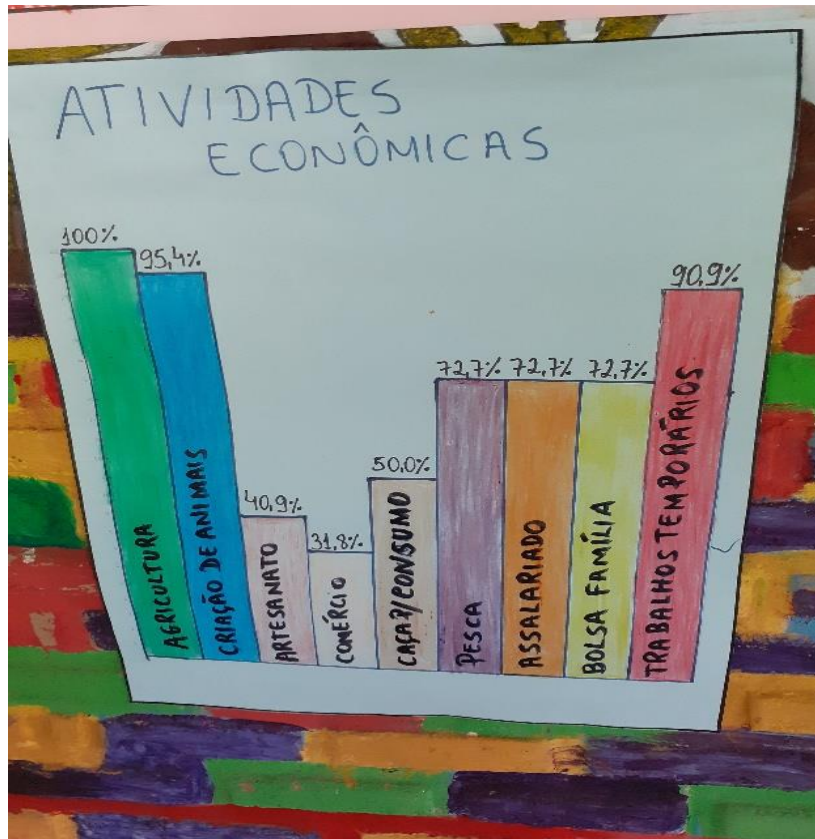 ATIVIDADES
ECONÔMICAS
100%
95,4%
40,9%
31,8%
50,0%
72,7%
72,7%
72,7%
90,9%
AGRICULTURA
CRIAÇÃO DE ANIMAIS
ARTESANATO
COMÉRCIO
CAÇA P/CONSUMO
PESCA
ASSALARIADO
BOLSA FAMÍLIA
TRABALHOS TEMPORÁRIOS